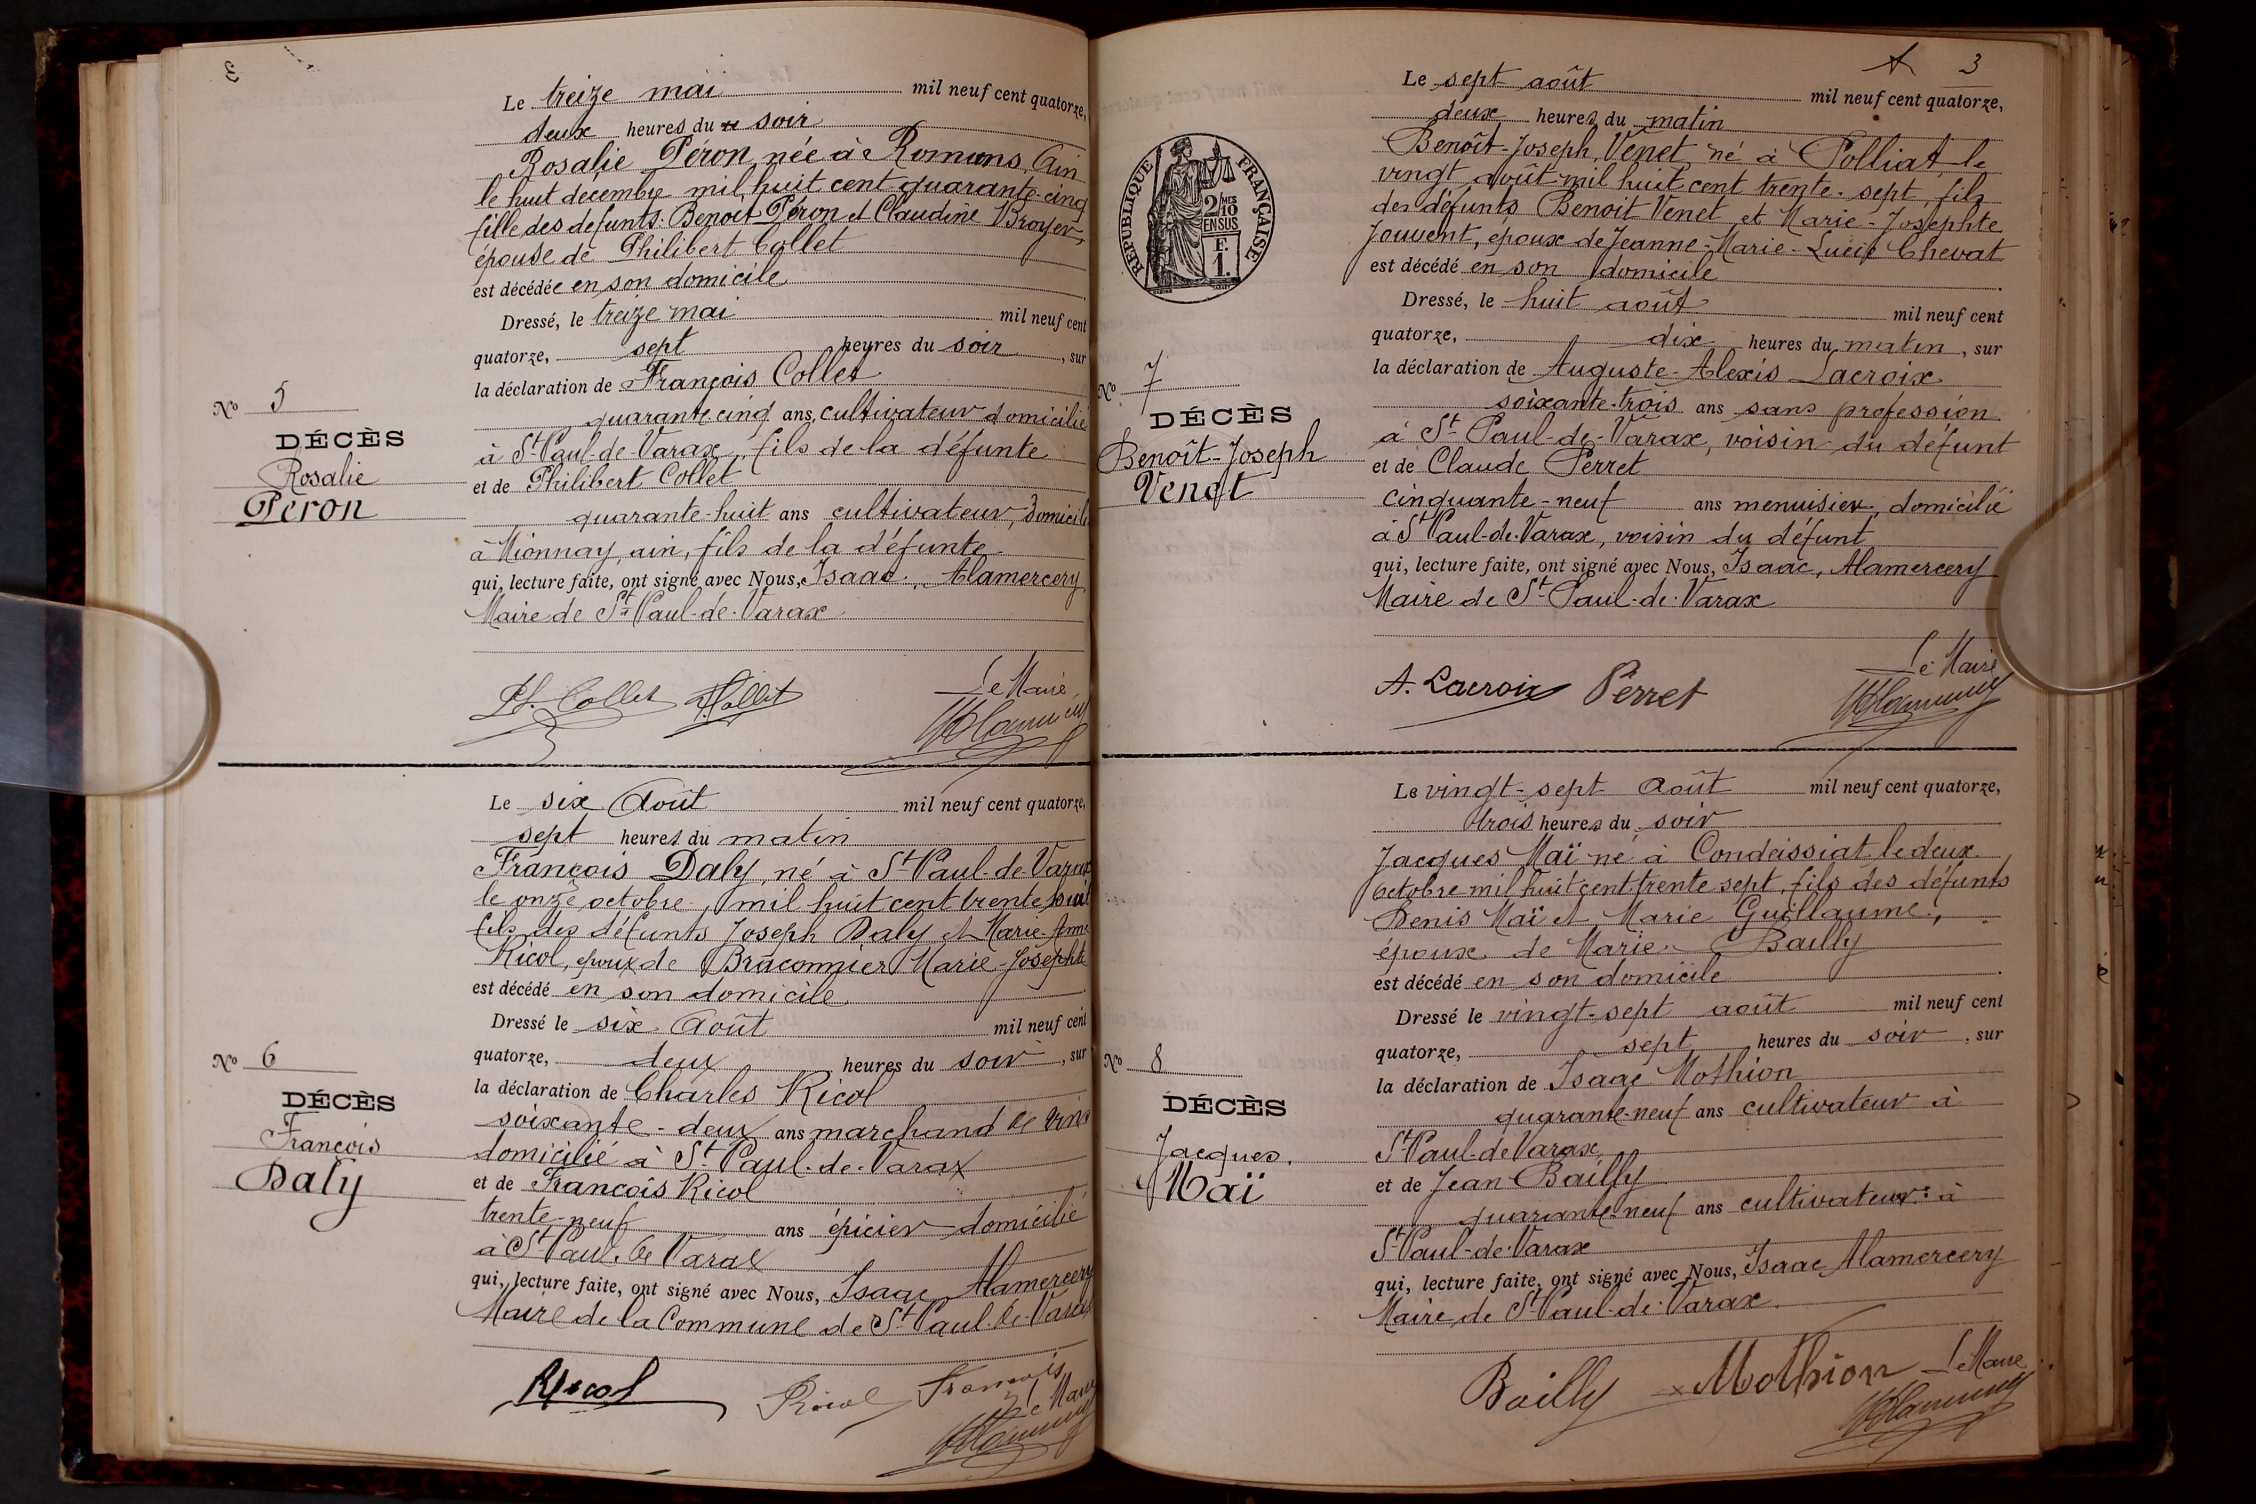 3
Le treize mai mil neuf cent quatorze,
deux heures du soir
Rosalie Péron, née à Romans, Ain
le huit décembre mil huit cent quarante-cinq
fille des défunts Benoit Péron et Claudine Broyer,
épouse de Philibert Collet
est décédée en son domicile
Dressé, le treize mai mil neuf cent
quatorze, sept heures du soir, sur
la déclaration de François Collet
quarante cinq ans, cultivateur domicilié
à St Paul-de-Varax, fils de la défunte
et de Philibert Collet
quarante-huit ans cultivateur, domicilié
à Mionnay, ain, fils de la défunte
qui, lecture faite, ont signé avec Nous, Isaac, Alamercery
Maire de St Paul-de-Varax
No 5
DÉCÈS
Rosalie
Péron
Ph. Collet F. Collet Le Maire
Alamercery
Le six Août mil neuf cent quatorze,
sept heures du matin
François Daly, né à St Paul-de-Varax
le onze octobre, mil huit cent trente huit
fils des défunts Joseph Daly et Marie-Anne
Ricol, époux de Braconnier Marie-Josephte
est décédé en son domicile
Dressé le six Août mil neuf cent
quatorze, deux heures du soir, sur
la déclaration de Charles Ricol
soixante-deux ans marchand de vins
domicilié à St Paul-de-Varax
et de François Ricol
trente-neuf ans épicier domicilié
à St Paul de Varax
qui, lecture faite, ont signé avec Nous, Isaac Alamercery
Maire de la Commune de St Paul-de-Varax
No 6
DÉCÈS
François
Daly
Ricol Ricol François
Le Maire
Alamercery
3
Le sept août mil neuf cent quatorze,
deux heures du matin
Benoît-Joseph, Venet, né à Polliat le
vingt août mil huit cent trente-sept, fils
des défunts Benoit Venet et Marie-Josephte
Jouvent, époux de Jeanne-Marie-Lucie Chevat
est décédé en son domicile
Dressé, le huit août mil neuf cent
quatorze, dix heures du matin, sur
la déclaration de Auguste-Alexis Lacroix
soixante-trois ans sans profession
à St Paul-de-Varax, voisin du défunt
et de Claude Perret
cinquante-neuf ans menuisier, domicilié
à St Paul-de-Varax, voisin du défunt
qui, lecture faite, ont signé avec Nous, Isaac, Alamercery
Maire de St Paul-de-Varax
RÉPUBLIQUE FRANÇAISE
2/10 MES
EN SUS
F.
1.
No 7
DÉCÈS
Benoît-Joseph
Venet
A. Lacroix Perret Le Maire
Alamercery
Le vingt-sept Août mil neuf cent quatorze,
trois heures du soir
Jacques Maï né à Condeissiat le deux
octobre mil huit cent trente sept, fils des défunts
Denis Maï et Marie Guillaume,
époux de Marie Bailly
est décédé en son domicile
Dressé le vingt-sept août mil neuf cent
quatorze, sept heures du soir, sur
la déclaration de Isaac Mothion
quarante-neuf ans cultivateur à
St Paul-de-Varax
et de Jean Bailly
quarante-neuf ans cultivateur à
St Paul-de-Varax
qui, lecture faite, ont signé avec Nous, Isaac Alamercery
Maire de St Paul-de-Varax.
No 8
DÉCÈS
Jacques.
Maï
Bailly Mothion Le Maire
Alamercery